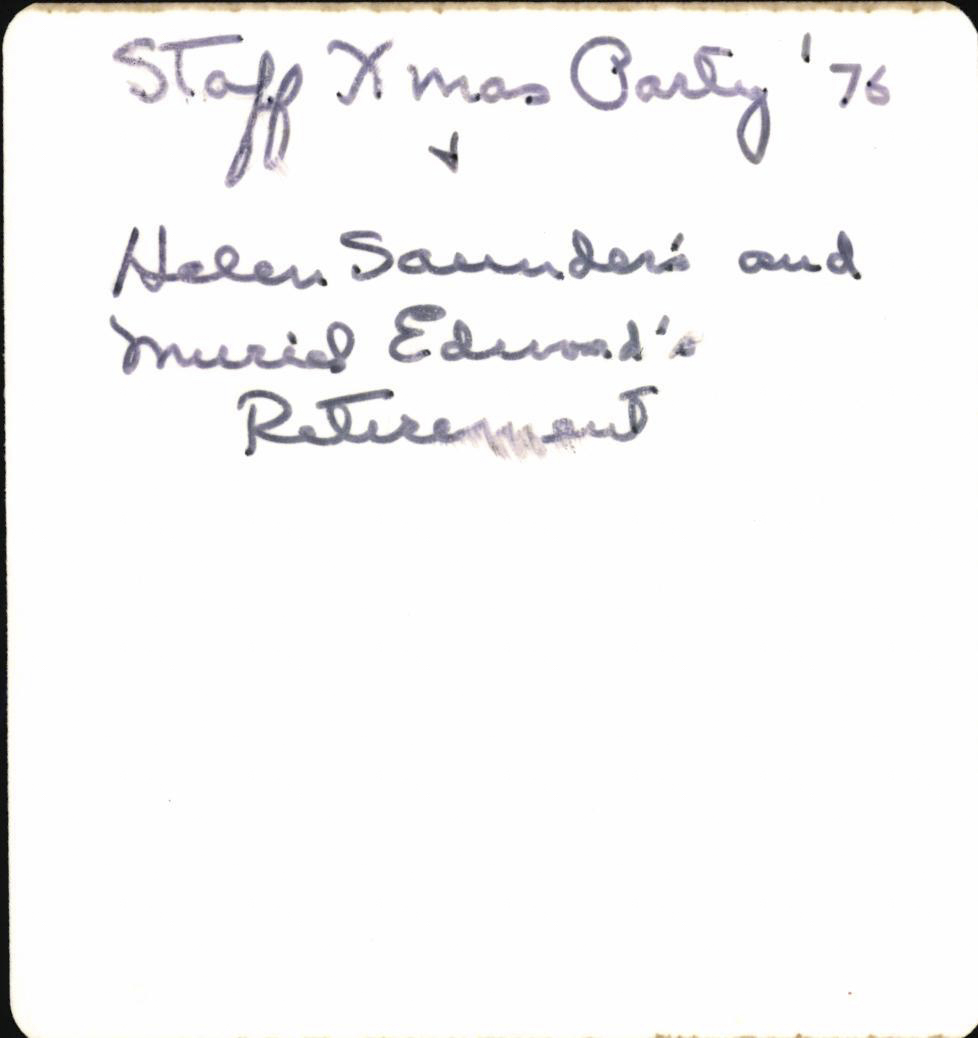 Staff Xmas Party '76
+
Helen Saunders and
Muriel Edward's
Retirement